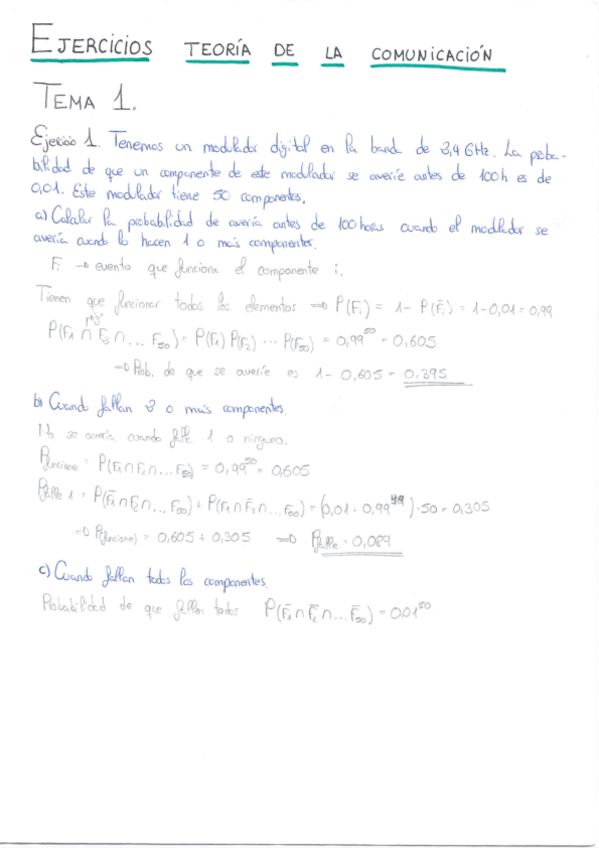 EJERCICIOS TEORÍA DE LA COMUNICACIÓN
TEMA 1.
Ejercicio 1. Tenemos un modulador digital en la banda de 3,4 GHz. La proba-
bilidad de que un componente de este modulador se averíe antes de 100h es de
0,01. Este modulador tiene 50 componentes.
a) Calcular la probabilidad de avería antes de 100 horas cuando el modulador se
avería cuando lo hacen 1 o más componentes.
Fi → evento que funcione el componente i.
Tienen que funcionar todos los elementos ⇒ P(Fi) = 1 - P(F̄i) = 1-0,01 = 0,99
P(F1 ∩ F2 ∩ ... F50) = P(F1) P(F2) ... P(F50) = 0,99^50 = 0,605
⇒ Prob. de que se averíe es 1 - 0,605 = 0,395
b) Cuando fallan o más componentes
No se avería cuando falle 1 o ninguno.
Pfuncione = P(F1∩F2∩... F50) = 0,99^50 = 0,605
Pfalle 1 = P(F̄1∩F2∩... F50) + P(F1∩F̄2∩... F50) = (0,01 · 0,99^49) · 50 = 0,305
⇒ P(funcione) = 0,605 + 0,305 ⇒ Pfalle = 0,089
c) Cuando fallan todos los componentes.
Probabilidad de que fallen todos P(F̄1∩F̄2∩...F̄50) = 0,01^50